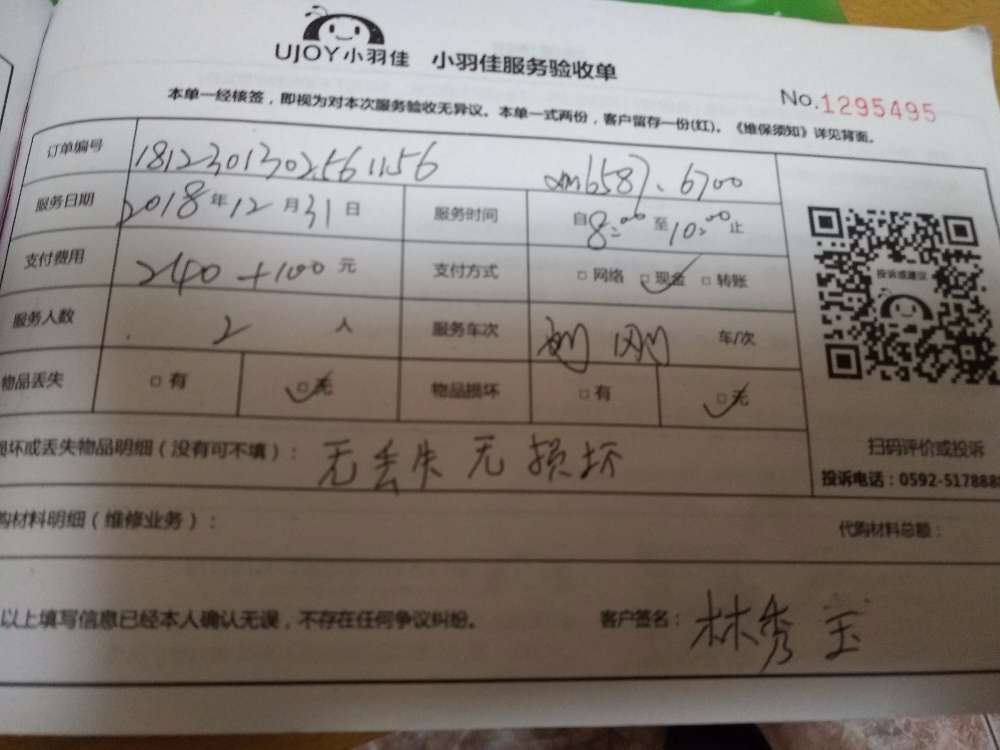 UJOY小羽佳 小羽佳服务验收单
No.1295495
本单一经核签，即视为对本次服务验收无异议。本单一式两份，客户留存一份(红)。《维保须知》详见背面。
订单编号 1812301302561156 6587、6700
服务日期 2018年12月31日 服务时间 自8:00至10:00止
支付费用 240+100元 支付方式 □网络 □现金 □转账
服务人数 2人 服务车次 车/次
物品丢失 □有 □无 物品损坏 □有 □无
投诉或建议
扫码评价或投诉
投诉电话：0592-517888
损坏或丢失物品明细（没有可不填）：无丢失无损坏
购材料明细（维修业务）： 代购材料总额：
以上填写信息已经本人确认无误，不存在任何争议纠纷。 客户签名：林秀玉